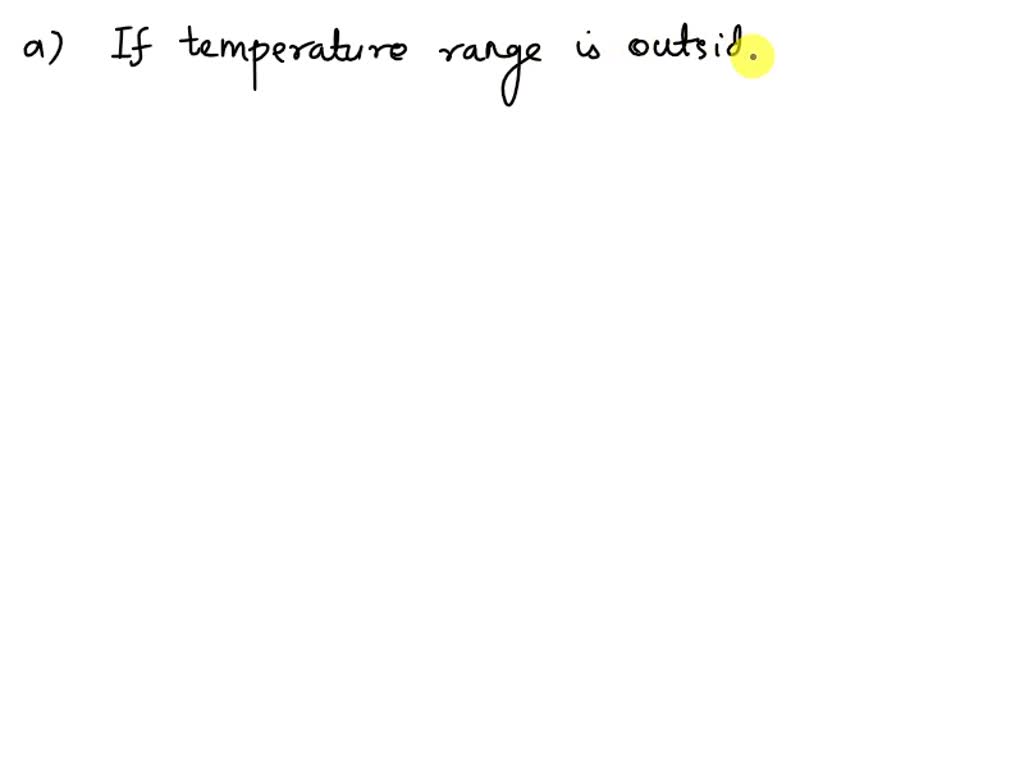 a) If temperature range is outsid